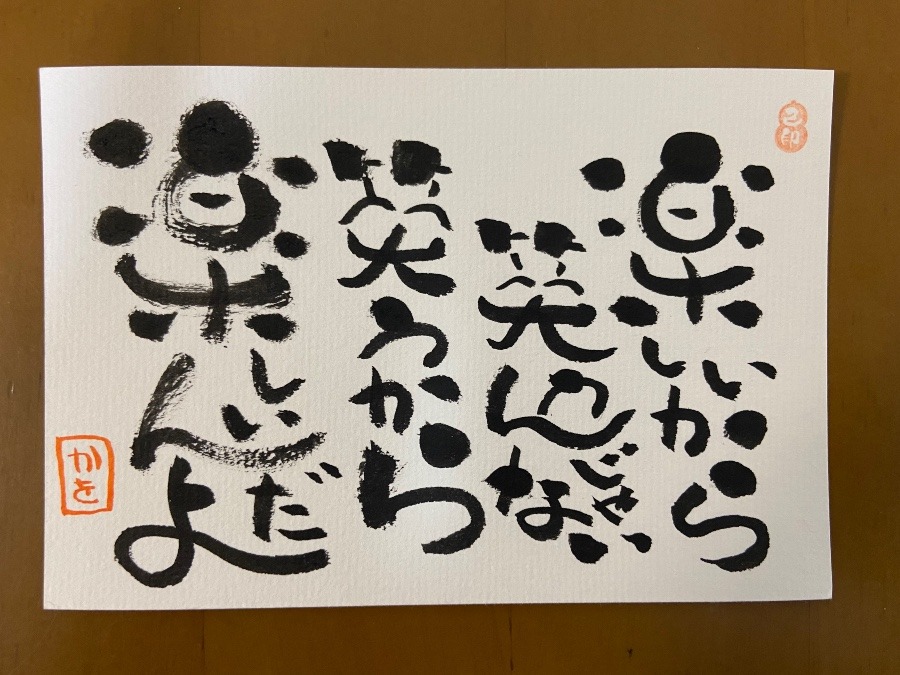 楽しいから
笑うんじゃない
笑うから
楽しいんだよ
かを